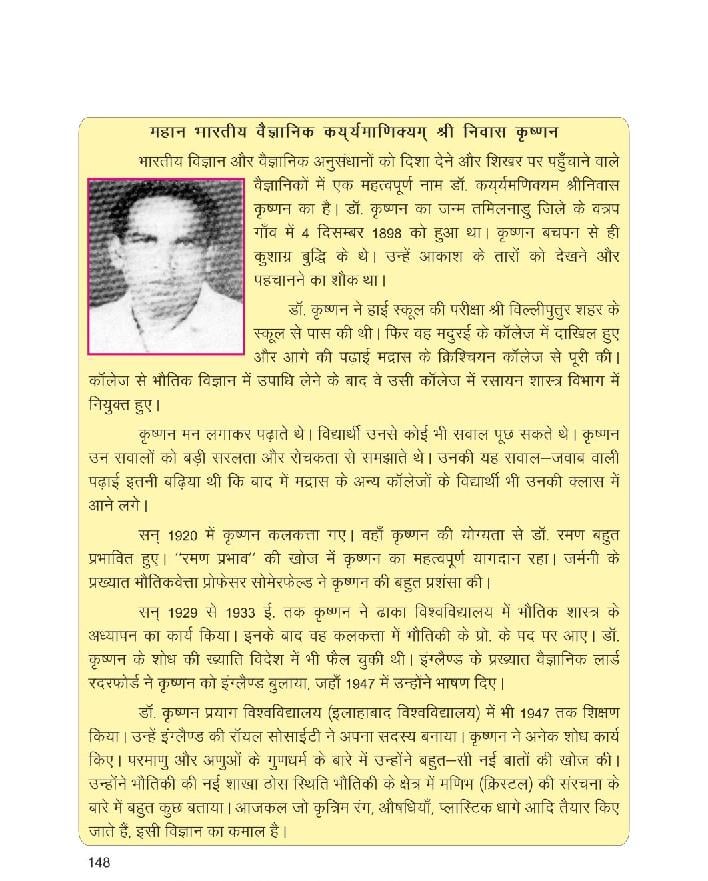 महान भारतीय वैज्ञानिक कर्य्यमाणिक्यम् श्री निवास कृष्णन
भारतीय विज्ञान और वैज्ञानिक अनुसंधानों को दिशा देने और शिखर पर पहुँचाने वाले
वैज्ञानिकों में एक महत्वपूर्ण नाम डॉ. कर्य्यमणिक्यम श्रीनिवास
कृष्णन का है। डॉ. कृष्णन का जन्म तमिलनाडु जिले के वत्रप
गाँव में 4 दिसम्बर 1898 को हुआ था। कृष्णन बचपन से ही
कुशाग्र बुद्धि के थे। उन्हें आकाश के तारों को देखने और
पहचानने का शौक था।
डॉ. कृष्णन ने हाई स्कूल की परीक्षा श्री विल्लीपुतुर शहर के
स्कूल से पास की थी। फिर वह मदुरई के कॉलेज में दाखिल हुए
और आगे की पढ़ाई मद्रास के क्रिश्चियन कॉलेज से पूरी की।
कॉलेज से भौतिक विज्ञान में उपाधि लेने के बाद वे उसी कॉलेज में रसायन शास्त्र विभाग में
नियुक्त हुए।
कृष्णन मन लगाकर पढ़ाते थे। विद्यार्थी उनसे कोई भी सवाल पूछ सकते थे। कृष्णन
उन सवालों को बड़ी सरलता और रोचकता से समझाते थे। उनकी यह सवाल–जवाब वाली
पढ़ाई इतनी बढ़िया थी कि बाद में मद्रास के अन्य कॉलेजों के विद्यार्थी भी उनकी क्लास में
आने लगे।
सन् 1920 में कृष्णन कलकत्ता गए। वहाँ कृष्णन की योग्यता से डॉ. रमण बहुत
प्रभावित हुए। "रमण प्रभाव" की खोज में कृष्णन का महत्वपूर्ण यागदान रहा। जर्मनी के
प्रख्यात भौतिकवेत्ता प्रोफेसर सोमेरफेल्ड ने कृष्णन की बहुत प्रशंसा की।
सन् 1929 से 1933 ई. तक कृष्णन ने ढाका विश्वविद्यालय में भौतिक शास्त्र के
अध्यापन का कार्य किया। इनके बाद वह कलकत्ता में भौतिकी के प्रो. के पद पर आए। डॉ.
कृष्णन के शोध की ख्याति विदेश में भी फैल चुकी थी। इंग्लैण्ड के प्रख्यात वैज्ञानिक लार्ड
रदरफोर्ड ने कृष्णन को इंग्लैण्ड बुलाया, जहाँ 1947 में उन्होंने भाषण दिए।
डॉ. कृष्णन प्रयाग विश्वविद्यालय (इलाहाबाद विश्वविद्यालय) में भी 1947 तक शिक्षण
किया। उन्हें इंग्लैण्ड की रॉयल सोसाईटी ने अपना सदस्य बनाया। कृष्णन ने अनेक शोध कार्य
किए। परमाणु और अणुओं के गुणधर्म के बारे में उन्होंने बहुत–सी नई बातों की खोज की।
उन्होंने भौतिकी की नई शाखा ठोस स्थिति भौतिकी के क्षेत्र में मणिभ (क्रिस्टल) की संरचना के
बारे में बहुत कुछ बताया। आजकल जो कृत्रिम रंग, औषधियाँ, प्लास्टिक धागे आदि तैयार किए
जाते हैं, इसी विज्ञान का कमाल है।
148